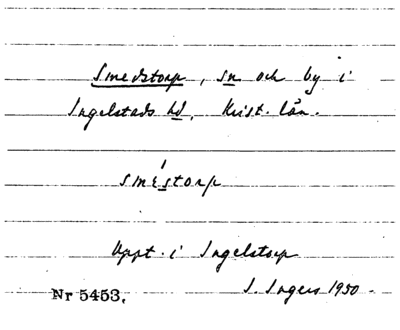 Smedstorp, sn och by i
Ingelstads hd, Krist. län.
smɛ́storp
Uppt. i Ingelstorp
I. Ingers 1930.
Nr 5453.